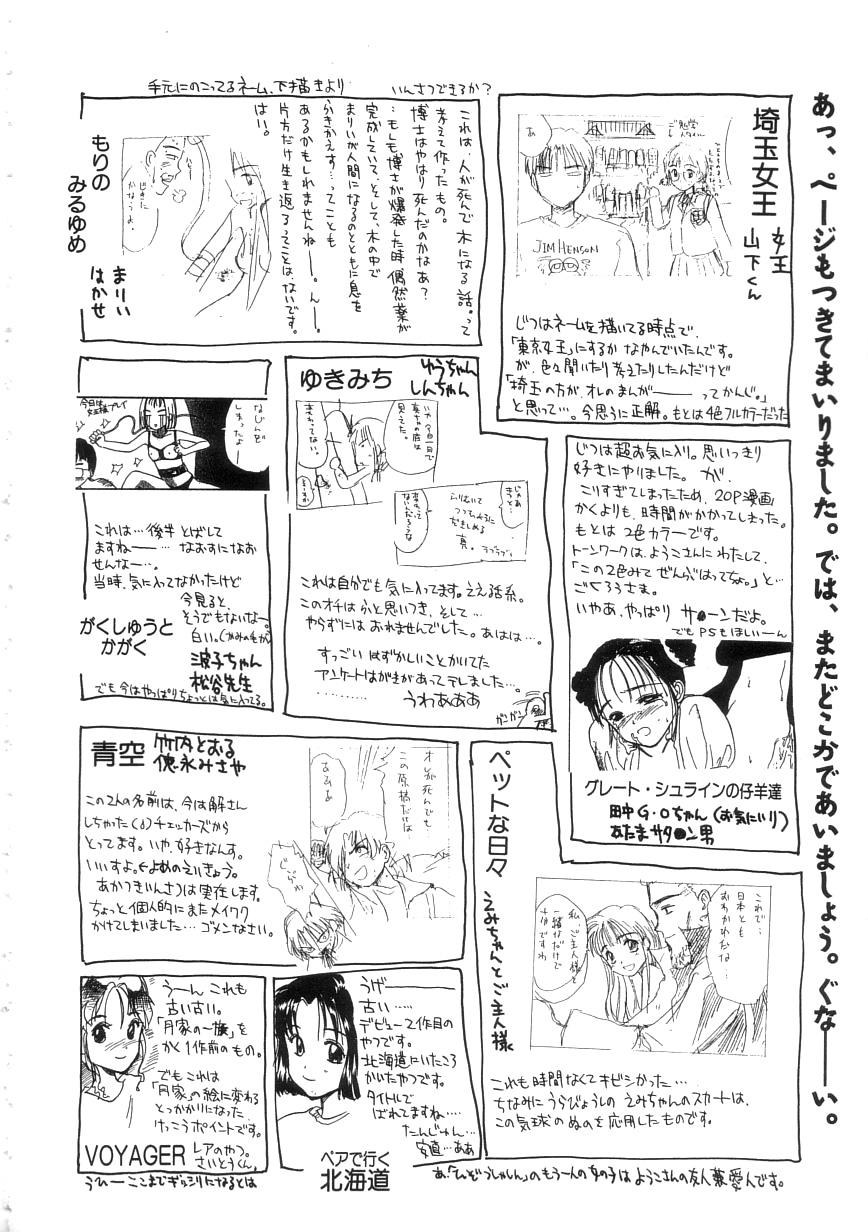 あっ、ページもつきてまいりました。では、またどこかであいましょう。ぐなーーい。
手元にのこってるネーム、下描きより　いんさつできるか？
埼玉女王
女王
山下くん
JIM HENSON
じつはネームを描いてる時点で、
「東京女王」にするか なやんでいたんです。
が、色々聞いたり考えたりしたんだけど
「埼玉の方が、オレのまんが――ってかんじ。」
と思って…。今思うに正解。もとは4色フルカラーだった
もりの
みるゆめ
まりい
はかせ
これは、人が死んで木になる話。って
考えて作ったもの。
博士はやはり死んだのかなあ？
…もしも博士が爆発した時 偶然薬が
完成していて、そして、木の中で
まりいが人間になるのとともに息を
ふきかえす…ってことも
あるかもしれませんねー。んー。
片方だけ生き返るってことは、ないです。
はい。
ゆきみち
ゆうちゃん
しんちゃん
いや 今日一日で
真ちゃんの底は
見えた。
変わってない。
じゃあ
きっと
変わって
ないんだろうな
ふりむいて
だきしめる
真。
ラブラブ!
これは自分でも気に入ってます。ええ話系。
このオチはふと思いつき、そして…
やらずには おれませんでした。あはは…。
すっごい はずかしいことかいてた
アンケートはがきがあってテレました…。
…………　うわあああ
ガンガン
今日は
女王様プレイ
なじんで
しまったよ…
これは…後半 とばして
ますねー――… なおすになお
せんなー…。
当時、気に入ってなかったけど
今見ると、
そうでもないなー。
白い。(かみの毛が)
がくしゅうと
かがく
波子ちゃん
松谷先生
でも今はやっぱりちょっとは気に入ってる。
じつは超お気に入り。思いっきり
好きにやりました。が、
こりすぎてしまったため、20P漫画
かくよりも、時間がかかってしまった。
もとは2色カラーです。
トーンワークは、ようこさんにわたして、
「この2色みて ぜんぶはってちょ。」と…
ごくろうさま。
いやあ、やっぱり サ●ーンだよ。
でもPSもほしいーん
グレート・シュラインの仔羊達
田中G・Oちゃん(お気にいり)
あたまサタ●ーン男
青空
竹内とおる
徳永みさや
この2人の名前は、今は解さん
しちゃった(?)チェッカーズから
とってます。いや、好きなんす。
いいすよ。←よめのえいきょう。
あかつきいんさつは実在します。
ちょっと個人的にまたメイワク
かけてしまいました…ゴメンなさい。
オレが死んでも
この原稿だけは…
ペットな日々
えみちゃんとご主人様
これで…
日本とも
おわかれだな…
私、ご主人様と
一緒なだけで
幸せですわ
これも時間なくてキビシかった…
ちなみにうらびょうしの えみちゃんのスカートは、
この気球のぬのを応用したものです。
うーん これも
古い古い。
「月家の一族」を
かく1作前のもの。
でもこれは
「月家」の絵に変わる
とっかかりになった、
けっこうポイントです。
VOYAGER
レアのやつ。
さいとうくん。
うげー――
古い……
デビュー2作目の
やつです。
北海道にいたころ
かいたやつです。
タイトルで
ばれてますね…
たんじゅん…
安直…ああ
ペアで行く
北海道
うひーーここまでぎっしりになるとは
あ、「ひんぞうしゃしん」のもう一人の女の子は ようこさんの友人兼愛人です。